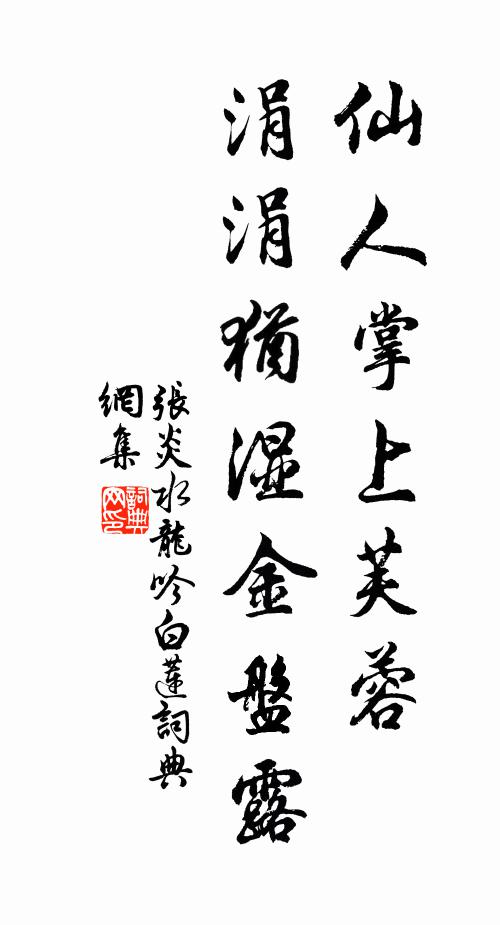 仙人掌上芙蓉
涓涓猶濕金盤露
張炎水龍吟白蓮詞典
網集
詞典
网印